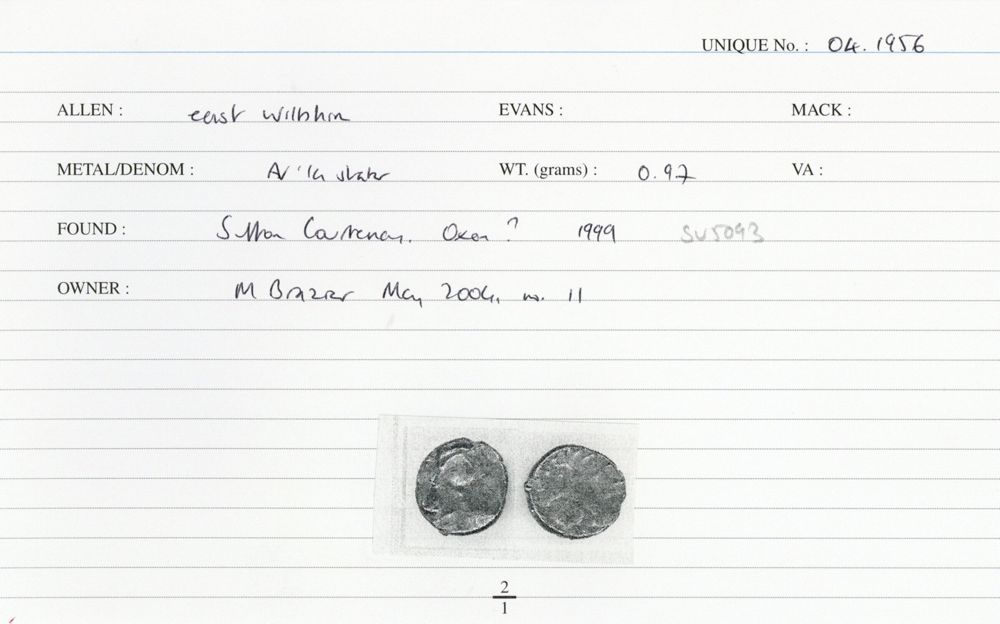 UNIQUE No. : 04.1956
ALLEN : east Wiltshire EVANS : MACK :
METAL/DENOM : AV 1/4 stater WT. (grams) : 0.97 VA :
FOUND : Sutton Courtenay, Oxon ? 1999 SU5093
OWNER : M Brazier May 2004, no. 11
2
1